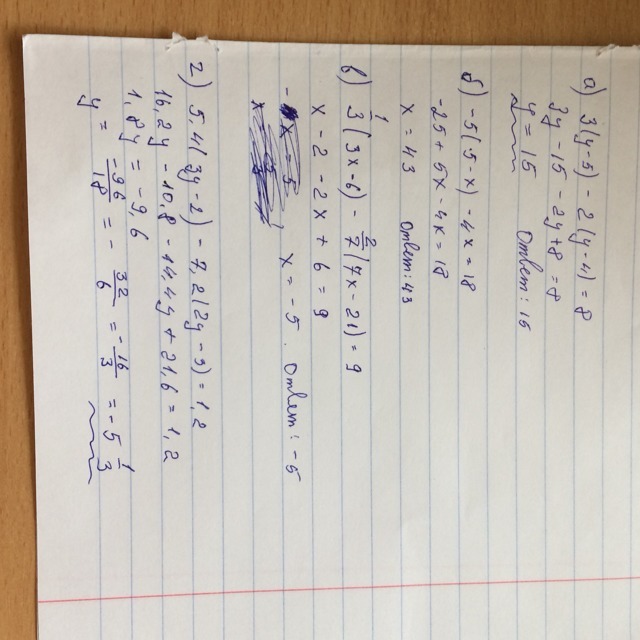 а) 3(y-5) - 2(y-4) = 8
3y - 15 - 2y + 8 = 8
y = 15 Ответ: 15
б) -5(5-x) - 4x = 18
-25 + 5x - 4x = 18
x = 43 Ответ: 43
в) 1/3(3x-6) - 2/7(7x-21) = 9
x - 2 - 2x + 6 = 9
x = -5. Ответ: -5
г) 5,4(3y-2) - 7,2(2y-3) = 1,2
16,2y - 10,8 - 14,4y + 21,6 = 1,2
1,8y = -9,6
y = -96/18 = -32/6 = -16/3 = -5 1/3